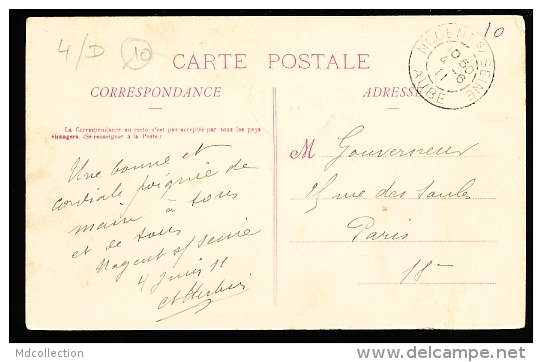 4/D 10
10
NOGENT S/ SEINE
AUBE
CARTE POSTALE
CORRESPONDANCE
ADRESSE
La Correspondance au recto n'est pas acceptée par tous les pays
étrangers. (Se renseigner à la Poste.)
Une bonne et
cordiale poignée de
main à tous
et de tous
Nogent s/ Seine
4 Juin 11
M Gouverneur
rue des Saules
Paris
18e
Mdcollection
delcampe.net